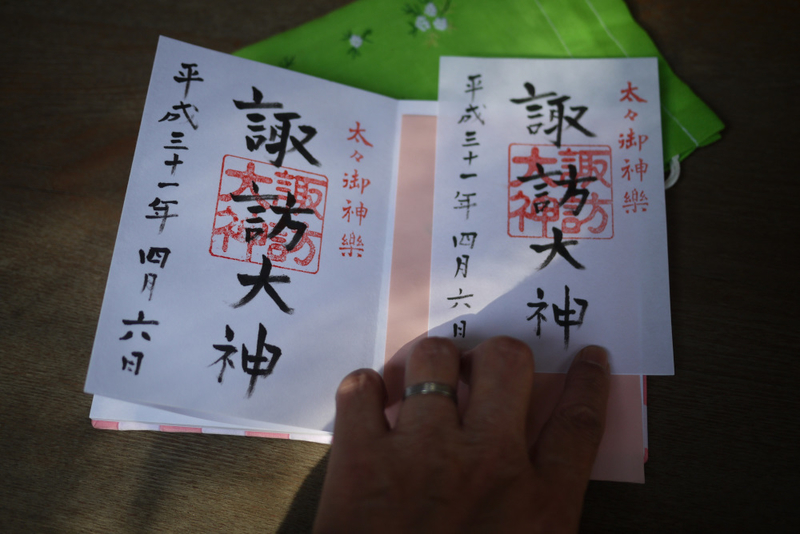 太々御神樂
諏訪大神
諏訪
大神
平成三十一年四月六日
太々御神樂
諏訪大神
諏訪
大神
平成三十一年四月六日